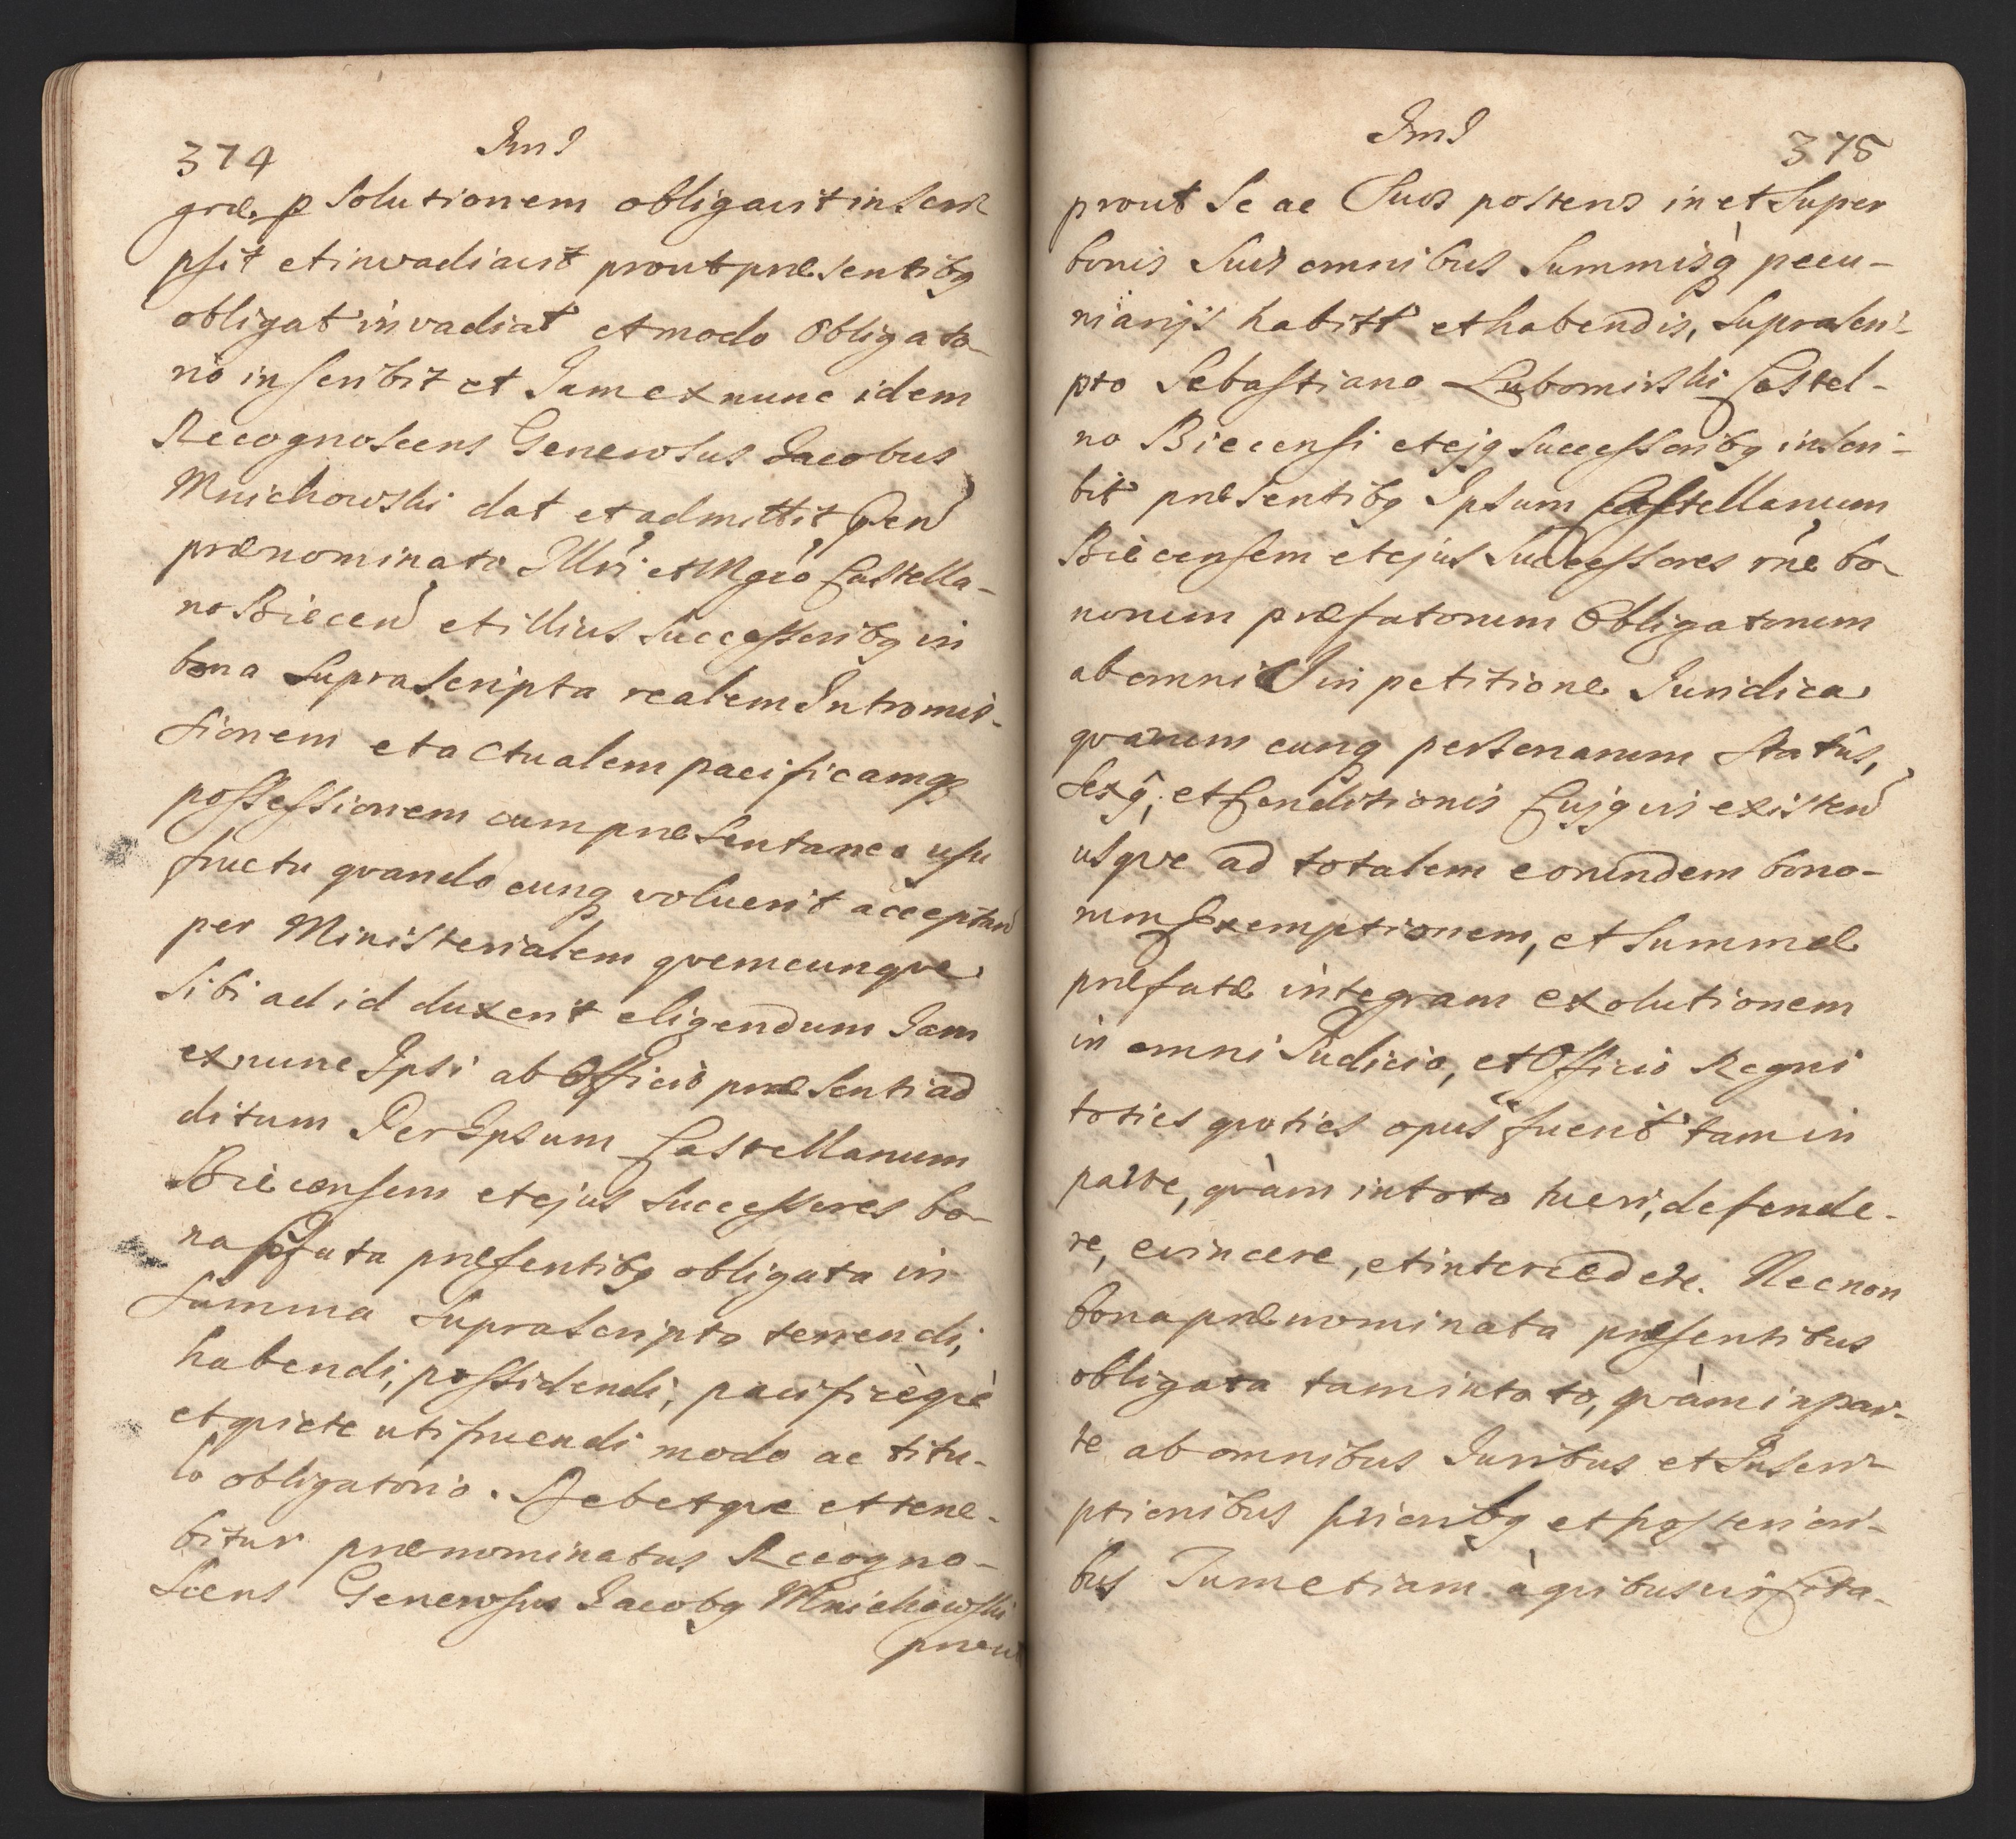 374
JmJ
græ, p solutionem obligavit inscri
psit et invadiavit prout præsentibq
obligat invadiat et modo Obligato-
rio inscribit et Jam ex nunc idem
Recognoscens Generosus Jacobus
Mnichowski dat et admittit Gen
prænominato Illri et Mgco Castella-
no Biecen et illius Successoribq in
bona Suprascripta realem Intromis-
sionem et actualem pacificamq
possessionem cum præsentaneo usu
fructu qvando cunq voluerit acceptan
per Ministerialem qvemcunqve
sibi ad id duxerit eligendum Jam
ex nunc Ipsi ab Officio præsenti ad
ditum Per Ipsum Castellanum
Biecensem et ejus Successores bo-
na pfata præsentibq obligata in
Summa Suprascripta tenendi,
habendi, possidendi, pacificèqè
et qviete utifruendi modo ac titu-
lo obligatorio. Debetqve et tene-
bitur prænominatus Recogno-
scens Generosus Jacobq Mnichowski
prou
JmJ
375
prout Se ac Suos posteros in et Super
bonis Suis omnibus Summisq pecu-
niarijs habitt et habendis, Suprascri-
pto Sebastiano Lubomirski Castel-
no Biecensi et ejq Successoribq inscri-
bit præsentibq Ipsum Castellanum
Biecensem et ejus Successores rne bo-
norum præfatorum Obligatorum
ab omni Impetitione Juridica
qvarum cunq personarum Statûs,
Sexq, et Conditionis Cujqvis existen
usqve ad totalem eorundem bono-
rum Exemptionem, et Summæ
præfatæ integram exolutionem
in omni Judicio, et Officio Regni
toties qvoties opus fuerit tam in
parte, qvàm in toto tueri, defende-
re, evincere, et intercedere. Nec non
bona prænominata præsentibus
obligata tam in toto, qvàm in par-
te ab omnibus Juribus et Inscri-
ptionibus prioribq et posteriori-
bus Tum etiam à qvibusvis Cita-